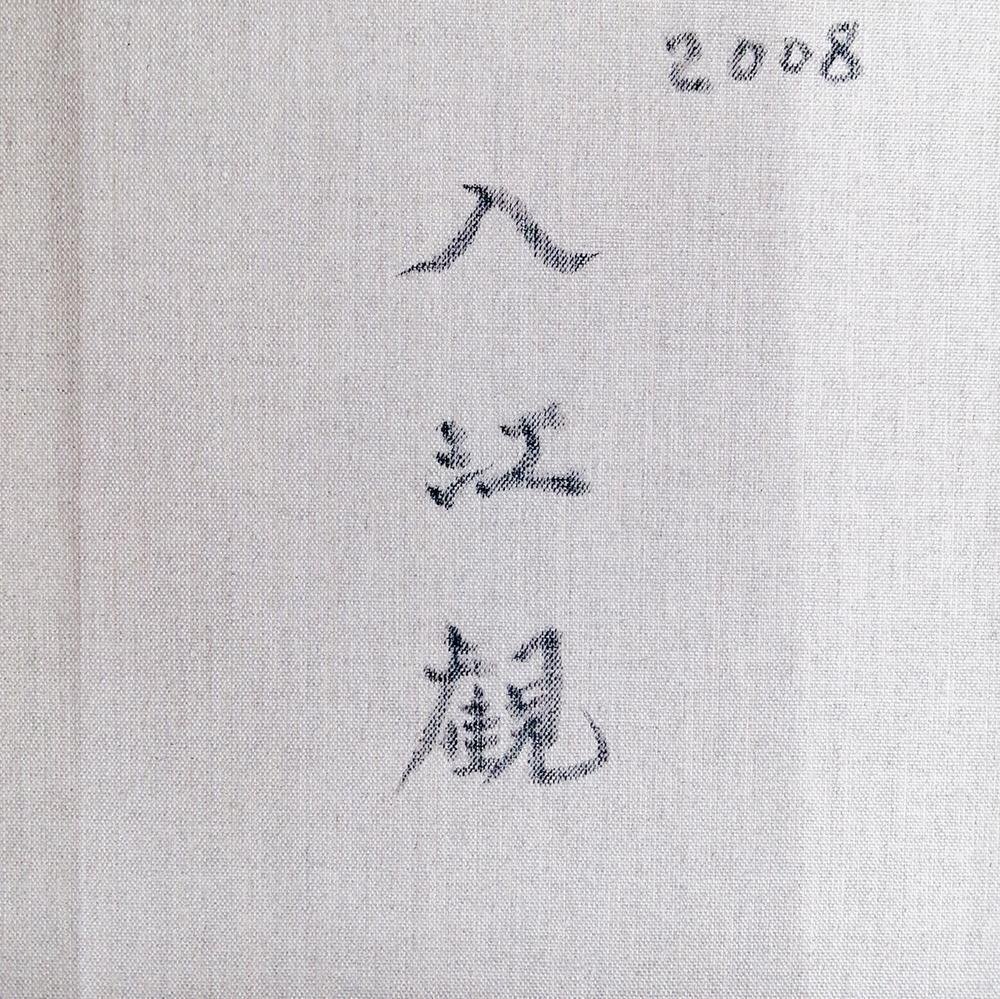 2008
入江観